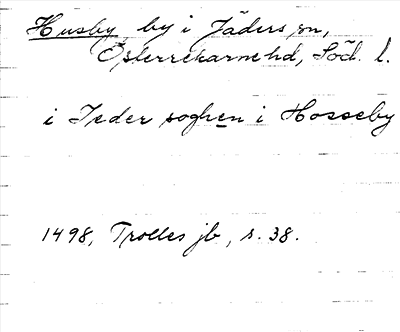 Husby, by i Jäders sn,
Österrekarne hd, Söd. l.
i Jeder soghen i Hosseby
1498, Trolles jb, s. 38.